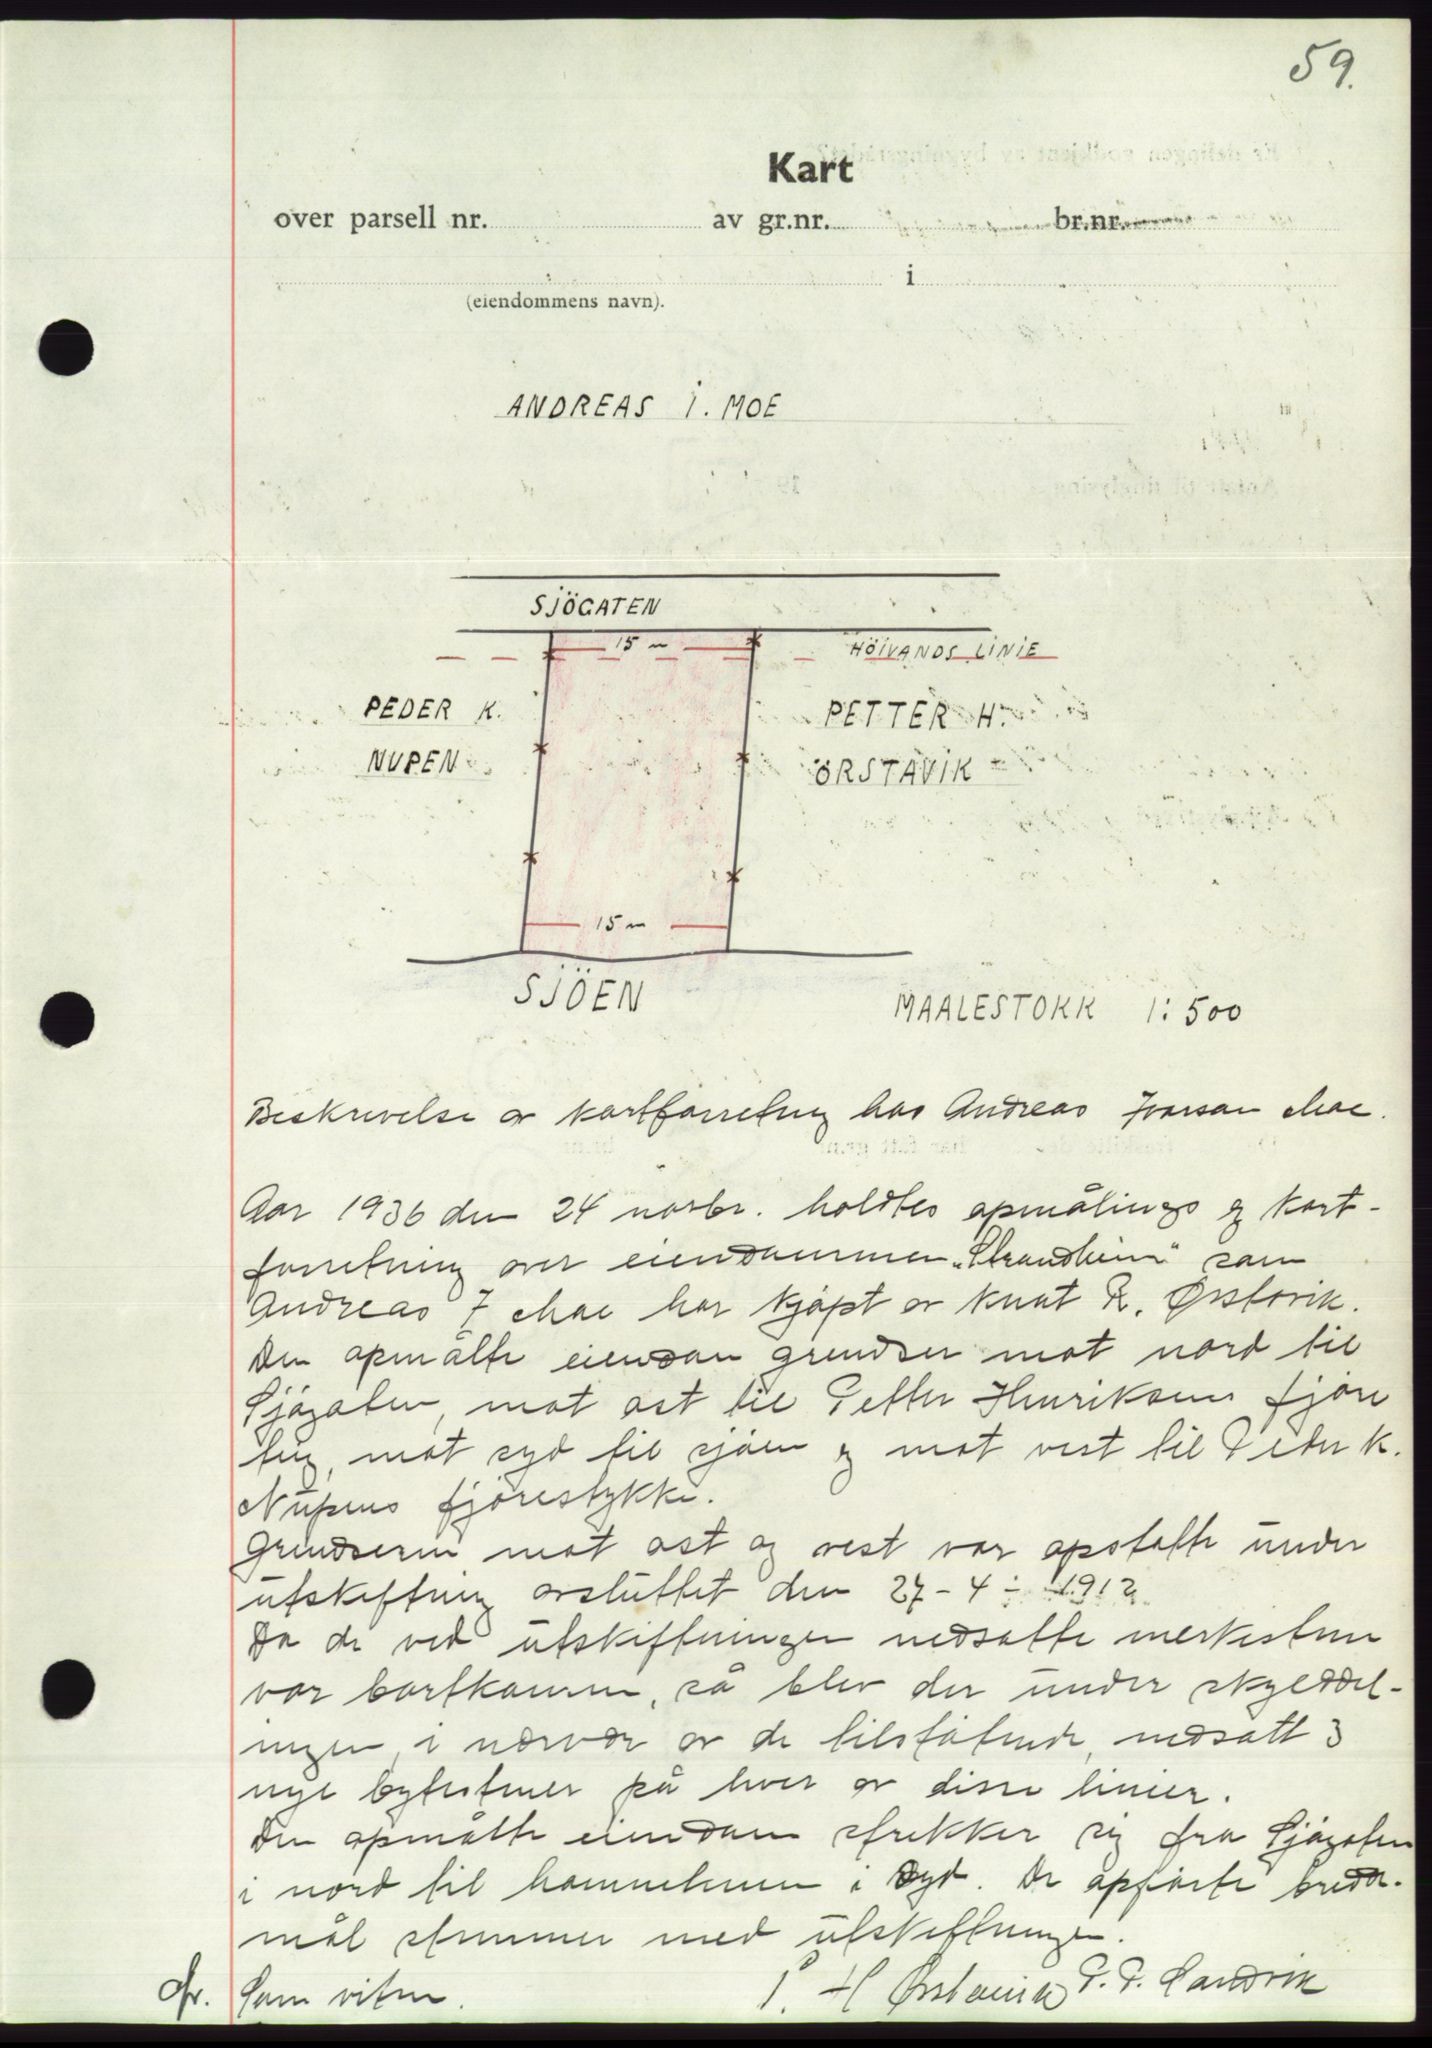 59.
Kart
over parsell nr. av gr.nr. br.nr.
i
(eiendommens navn).
ANDREAS I. MOE
SJÖGATEN
15 m
HÖIVANDS LINIE
PEDER K.
NUPEN
PETTER H.
ÖRSTAVIK
15 m
SJÖEN
MAALESTOKK 1:500
Beskrivelse av kartforretning hos Andreas Ivarson Moe.
Aar 1936 den 24 novbr. holdtes opmålings og kart-
forretning over eiendommen „Strandheim" som
Andreas I Moe har kjøpt av Knut R. Ørstavik.
Den opmålte eiendom grendser mot nord til
Sjøgaten, mot øst til Petter Henriksens fjøre
teig, mot syd til sjøen og mot vest til Peder K.
Nupens fjørestykke.
Grendserne mot øst og vest var opstatte under
utskiftning avsluttet den 27-4-1912
Da de ved utskiftningen nedsatte merkestene
var bortkomne, så blev der under skylddel-
ingen, i nærvær av de tilstøtende, nedsatt 3
nye bytestener på hver av disse linier.
Den opmålte eiendom strekker sig fra Sjøgaten
i nord til havnelinien i syd. De opførte bredde-
mål stemmer med utskiftningen.
Som vitne. P. H Ørstavik P. P. Sandvik